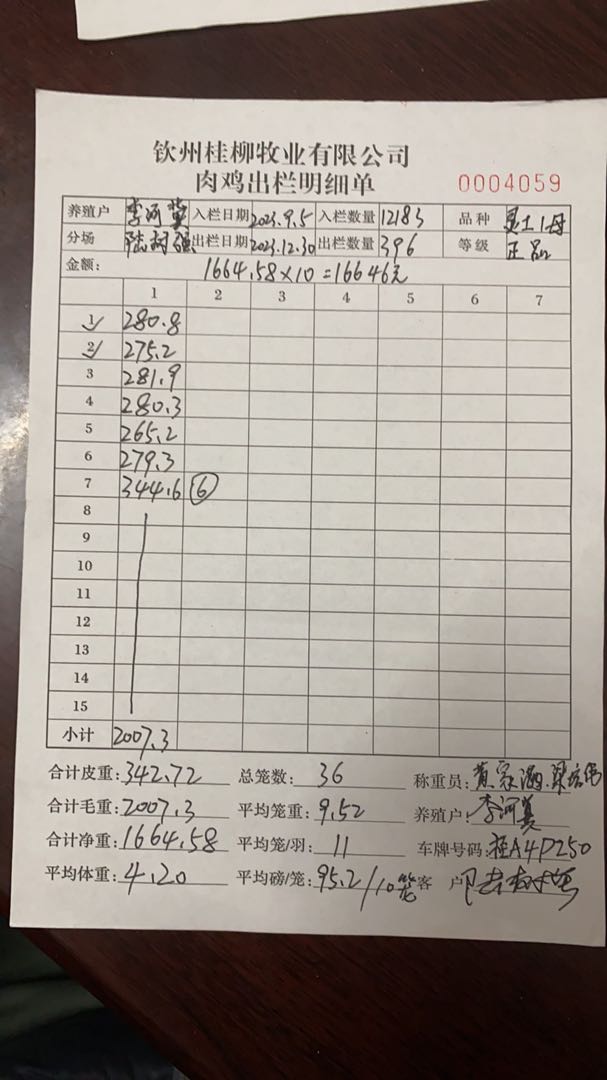 钦州桂柳牧业有限公司
肉鸡出栏明细单 0004059
养殖户 李河 入栏日期 2023.9.5 入栏数量 12183 品种 土1母
分场 陆 出栏日期 2023.12.30 出栏数量 396 等级 正品
金额: 1664.58×10=16646元
1 2 3 4 5 6 7
1 280.8
2 275.2
3 281.9
4 280.3
5 265.2
6 279.3
7 344.6 ⑥
8
9
10
11
12
13
14
15
小计 2007.3
合计皮重: 342.72 总笼数: 36 称重员: 黄家
合计毛重: 2007.3 平均笼重: 9.52 养殖户: 李河
合计净重: 1664.58 平均笼/羽: 11 车牌号码: 桂A4P250
平均体重: 4.20 平均磅/笼: 95.2/10笼 客户